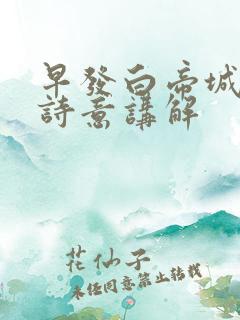 早發白帝城
詩意講解
花仙子
未经同意禁止转载